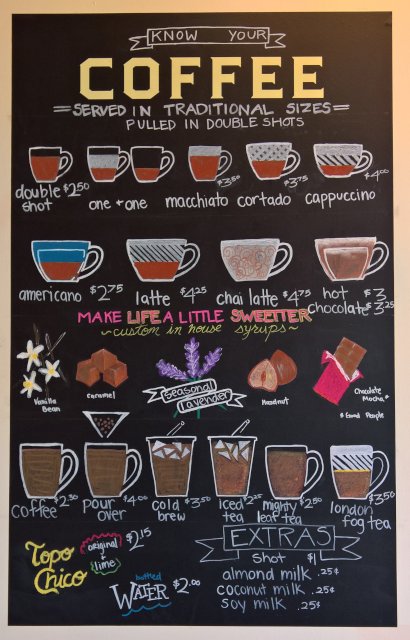 KNOW YOUR
COFFEE
SERVED IN TRADITIONAL SIZES
PULLED IN DOUBLE SHOTS
double shot $2.50
one + one
macchiato $3.50
cortado $3.75
cappuccino $4.00
americano $2.75
latte $4.25
chai latte $4.75
hot $3
chocolate $3.25
MAKE LIFE A LITTLE SWEETTER
~custom in house syrups~
Vanilla Bean
caramel
Seasonal
Lavender
Hazelnut
Chocolate
Mocha*
* Good People
coffee $2.50
pour over $4.00
cold brew $3.50
iced tea $2.25
mighty leaf tea $2.50
london fog tea $3.50
Topo Chico
original
lime
$2.15
bottled
WATER $2.00
EXTRAS
Shot $1
almond milk .25¢
coconut milk .25¢
soy milk .25¢